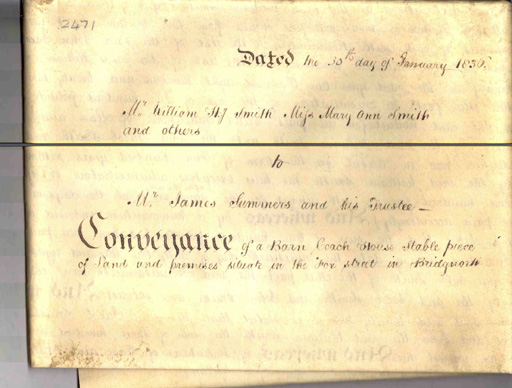 2471
Dated the 30th day of January 1830.
Mr. William Smith Miss Mary Ann Smith
and others
to
Mr. James Summers and his Trustee
Conveyance of a Barn Coach House Stable piece
of Land and premises situate in the Fox street in Bridgnorth